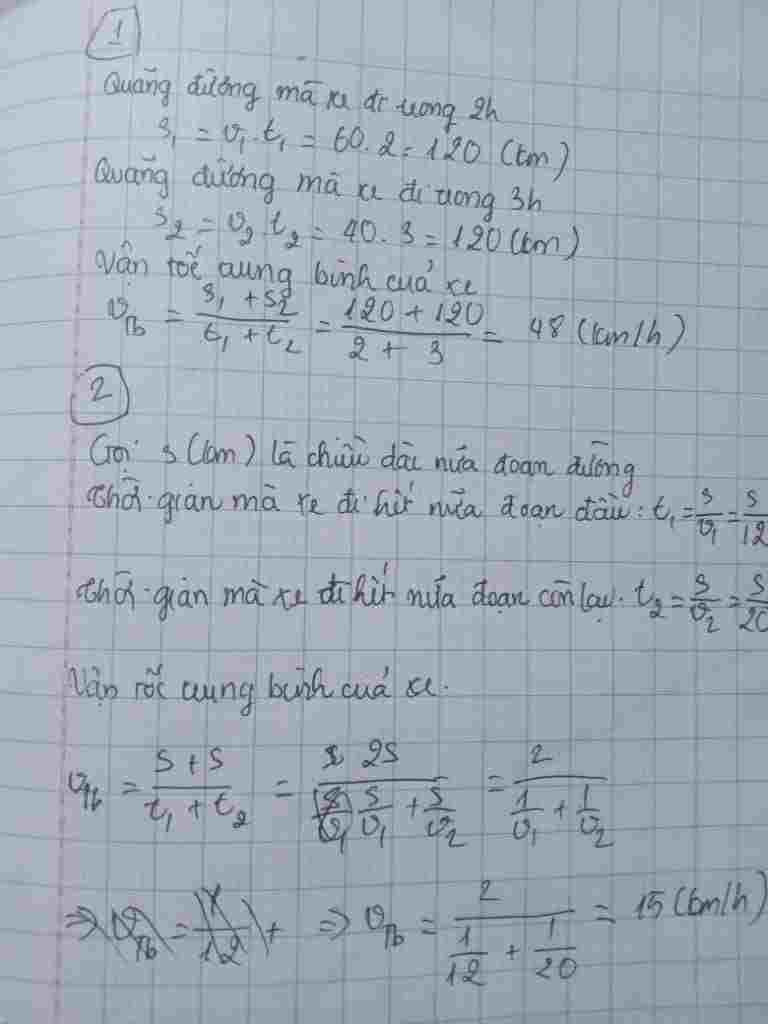 1
Quãng đường mà xe đi trong 2h
s₁ = v₁.t₁ = 60.2 = 120 (km)
Quãng đường mà xe đi trong 3h
s₂ = v₂.t₂ = 40.3 = 120 (km)
Vận tốc trung bình của xe
v_Tb = (s₁ + s₂)/(t₁ + t₂) = (120 + 120)/(2 + 3) = 48 (km/h)
2
Gọi s (km) là chiều dài nửa đoạn đường
Thời gian mà xe đi hết nửa đoạn đầu: t₁ = s/v₁ = s/12
Thời gian mà xe đi hết nửa đoạn còn lại. t₂ = s/v₂ = s/20
Vận tốc trung bình của xe.
v_Tb = (s + s)/(t₁ + t₂) = 2s/(s/v₁ + s/v₂) = 2/(1/v₁ + 1/v₂)
⇒ v_Tb = 2/(1/12 + 1/20) = 15 (km/h)